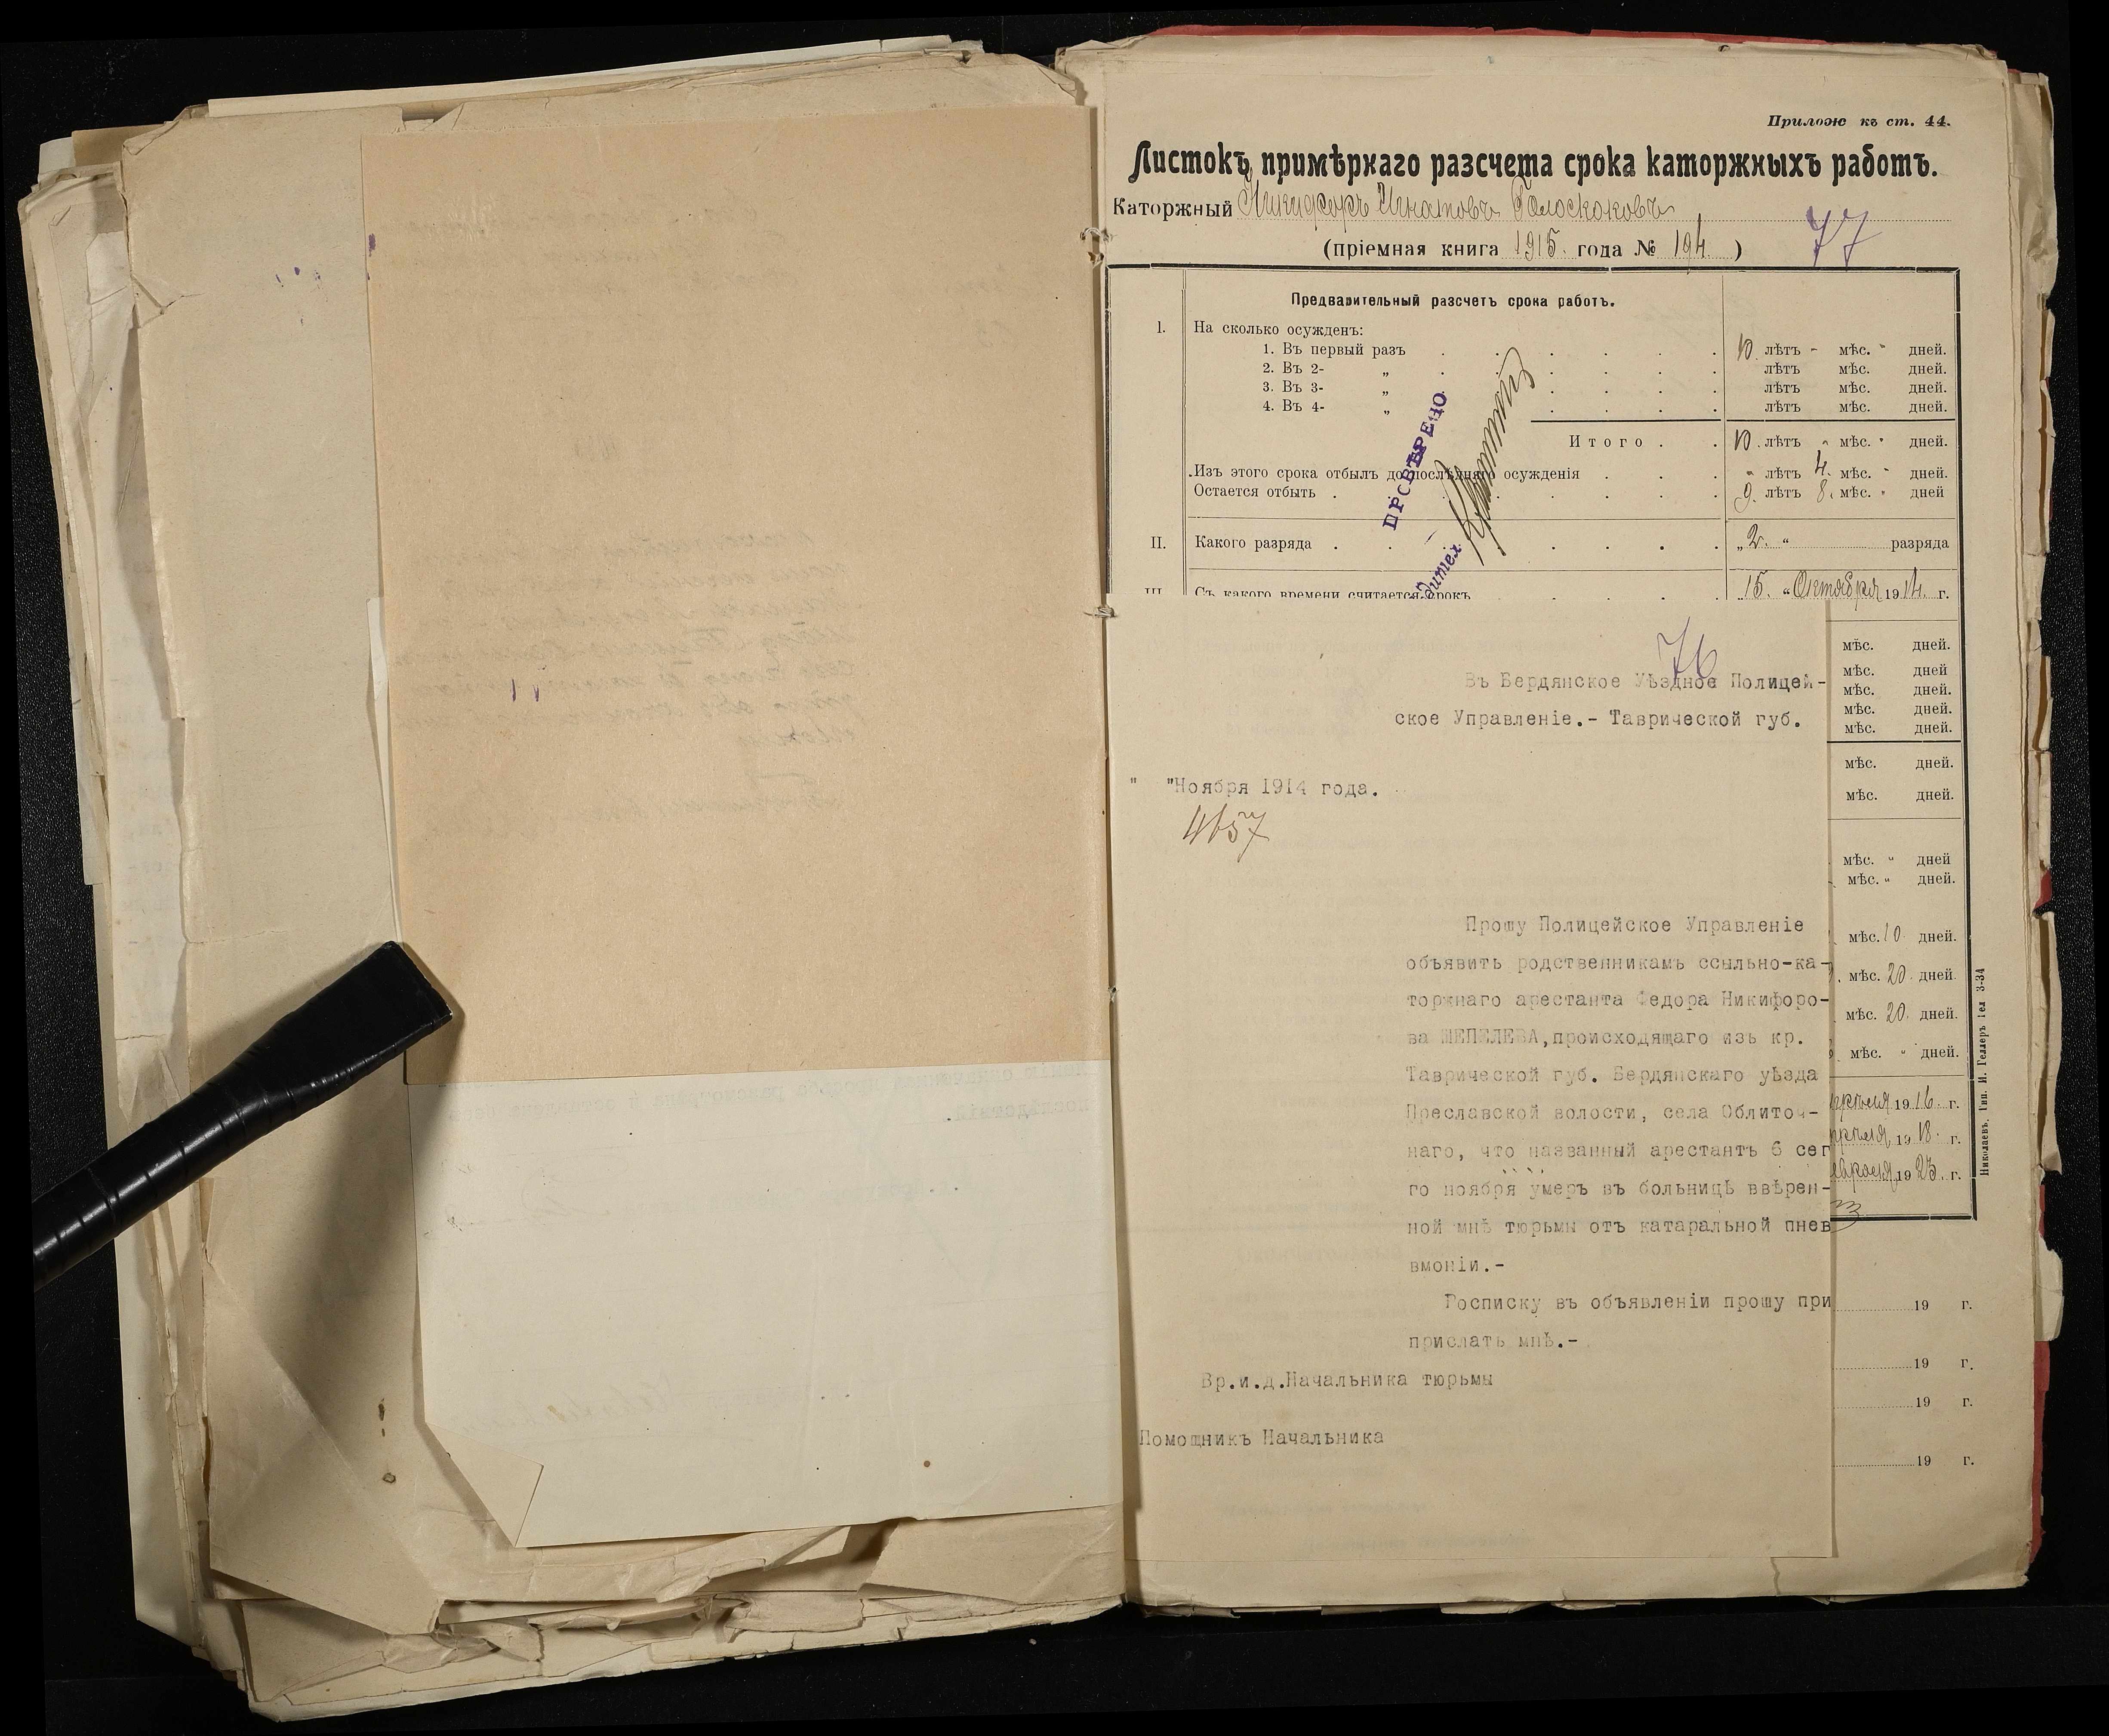 Прилож къ ст. 44.
Листокъ примѣрнаго разсчета срока каторжныхъ работъ.
Каторжный Никифоръ Игнатовъ Голоскоковъ
77
(пріемная книга 1915. года № 194. )
Предварительный разсчетъ срока работъ.
I. На сколько осужденъ:
1. Въ первый разъ . . . . . . 10. лѣтъ - мѣс. " дней.
2. Въ 2- „ . . . . . . лѣтъ мѣс. дней.
3. Въ 3- „ . . . . лѣтъ мѣс. дней.
4. Въ 4- „ . . . . лѣтъ мѣс. дней.
Итого . . 10. лѣтъ " мѣс. " дней.
Изъ этого срока отбылъ до послѣдняго осужденія . . . " лѣтъ 4. мѣс. " дней.
Остается отбыть . . . . . . 9. лѣтъ 8. мѣс. " дней
ПРОВѢРЕНО
II. Какого разряда . . . . . . „ 2. " разряда
III. Съ какого времени считается срокъ . . . . 15. "Октября 1914. г.
76
Въ Бердянское Уѣздное Полицей-
ское Управленіе.- Таврической губ.
" "Ноября 1914 года.
4657
Прошу Полицейское Управленіе
объявить родственникамъ ссыльно-ка-
торжнаго арестанта Федора Никифоро-
ва ШЕПЕЛЕВА,происходящаго изъ кр.
Таврической губ. Бердянскаго уѣзда
Преславской волости, села Облиточ-
наго, что названный арестантъ 6 сег
го ноября умеръ въ больницѣ ввѣрен-
ной мнѣ тюрьмы отъ катаральной пнев
вмоніи.-
Росписку въ объявленіи прошу при
прислать мнѣ.-
Вр.и.д.Начальника тюрьмы
Помощникъ Начальника
мѣс. дней.
мѣс. дней
мѣс. дней.
мѣс. дней.
мѣс. дней.
мѣс. дней.
мѣс. дней.
мѣс. " дней
мѣс. " дней.
мѣс. 10 дней.
мѣс. 20. дней.
мѣс. 20. дней.
мѣс. " дней.
1916. г.
1918. г.
1923. г.
19 г.
19 г.
19 г.
19 г.
Николаевъ. Тип. И. Геллеръ Тел 3-34